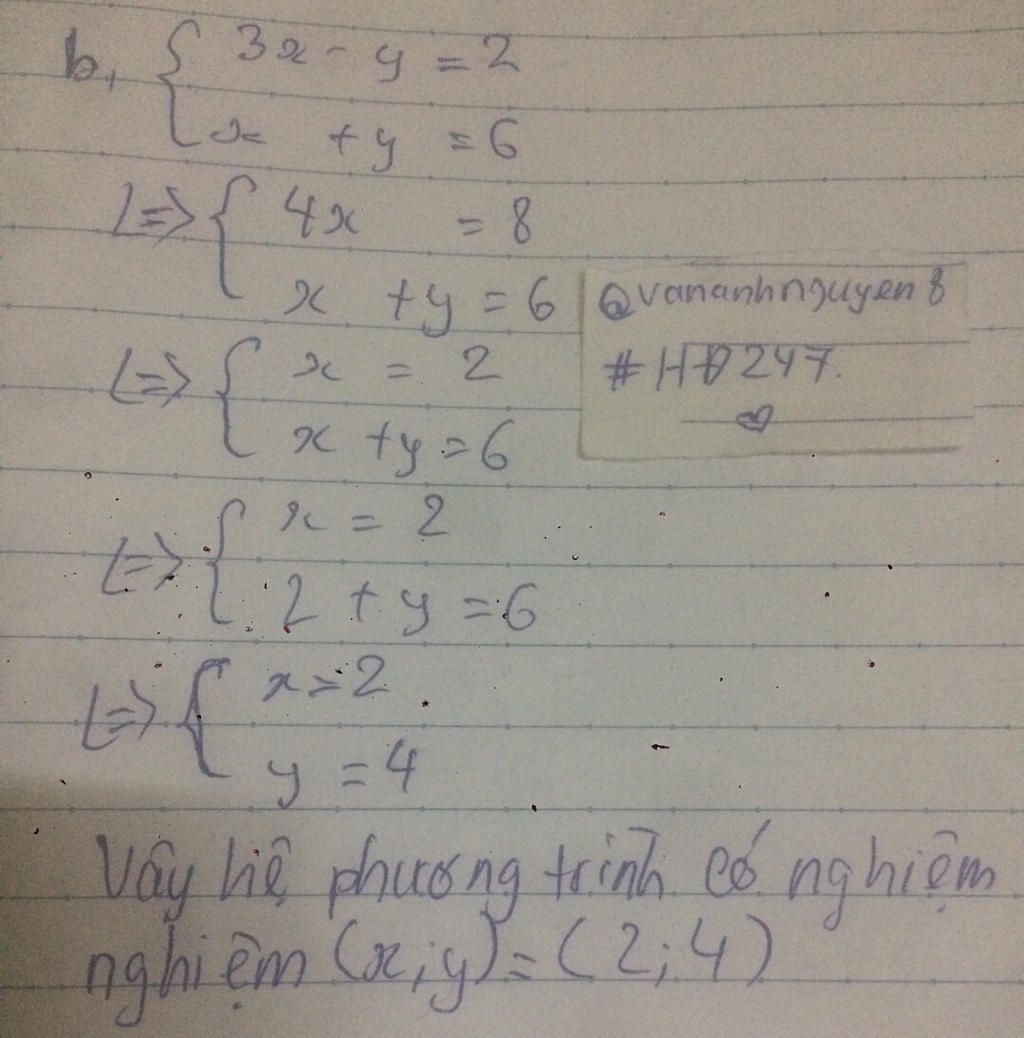 b, { 3x - y = 2
x + y = 6
<=> { 4x = 8
x + y = 6
@vananhnguyen8
#HĐ247.
<=> { x = 2
x + y = 6
<=> { x = 2
2 + y = 6
<=> { x = 2
y = 4
Vậy hệ phương trình có nghiệm
nghiệm (x; y) = (2; 4)